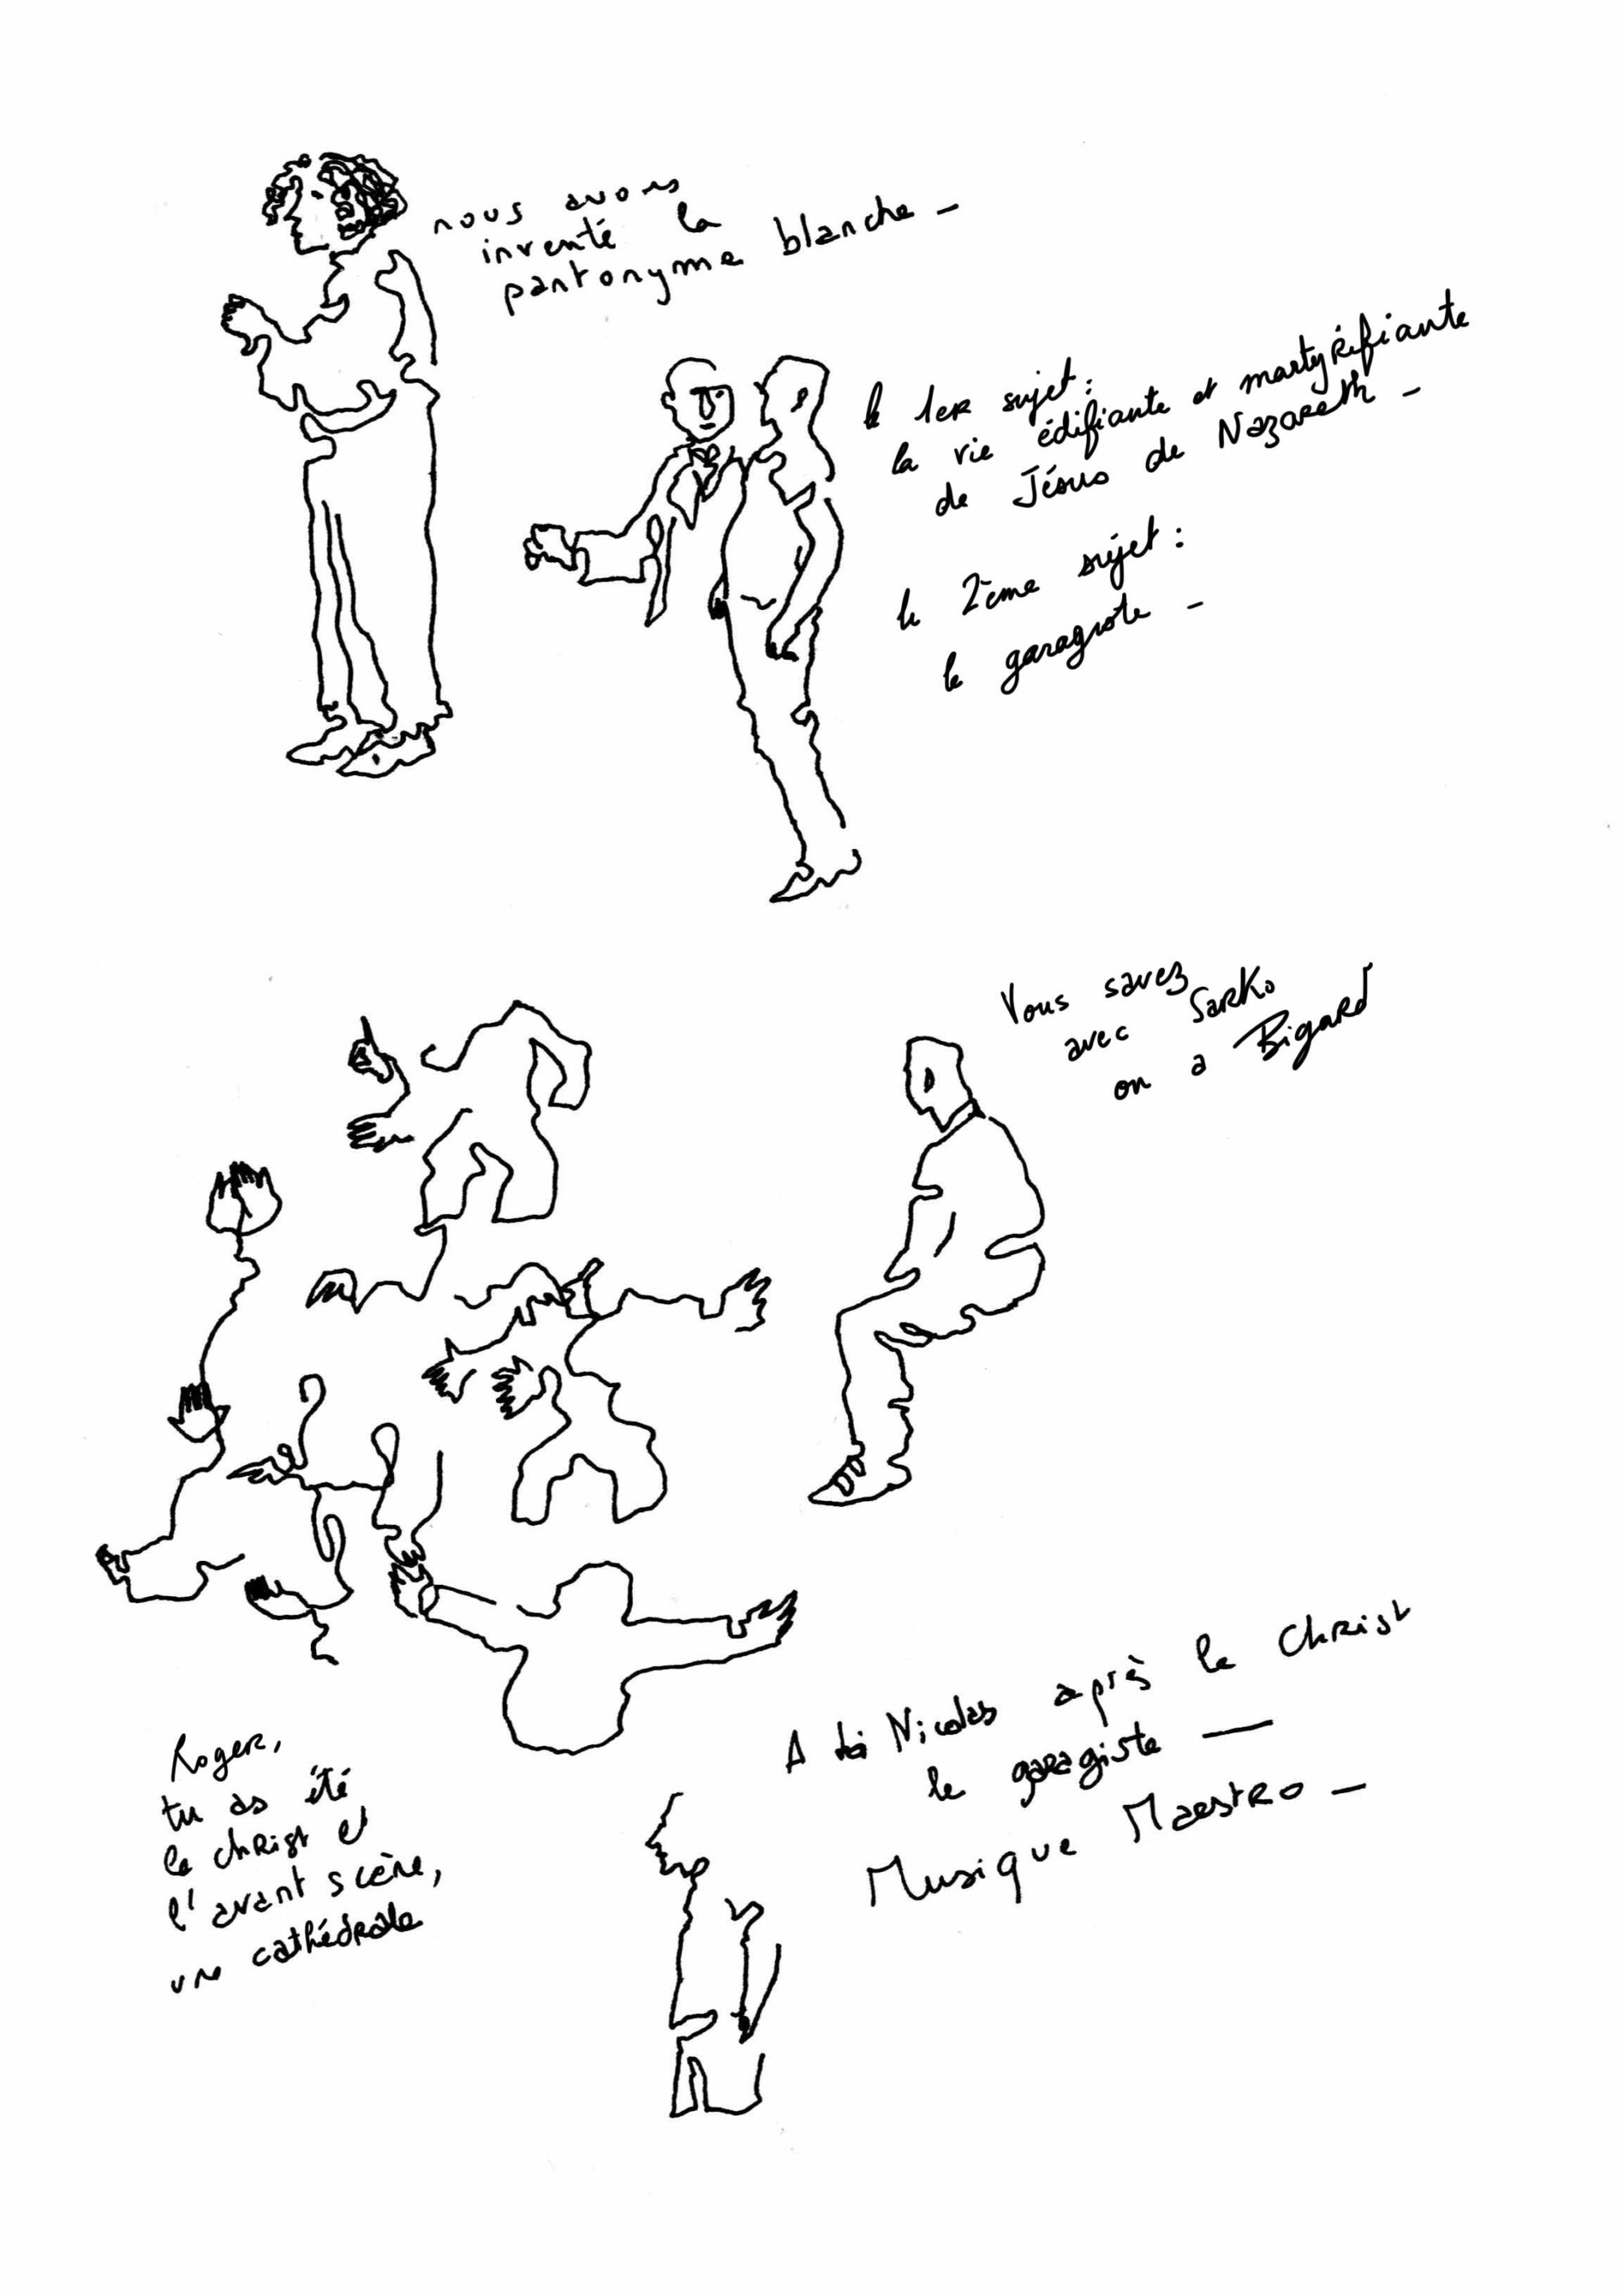 nous avons
inventé la
pantonyme blanche -
le 1er sujet:
la vie édifiante et martyrifiante
de Jésus de Nazareth -
le 2ème sujet:
le garagiste -
Vous savez
avec Sarko
on a Bigard
A toi Nicolas après le Christ
le garagiste —
Musique Maestro -
Roger,
tu as été
le christ et
l'avant scène,
une cathédrale